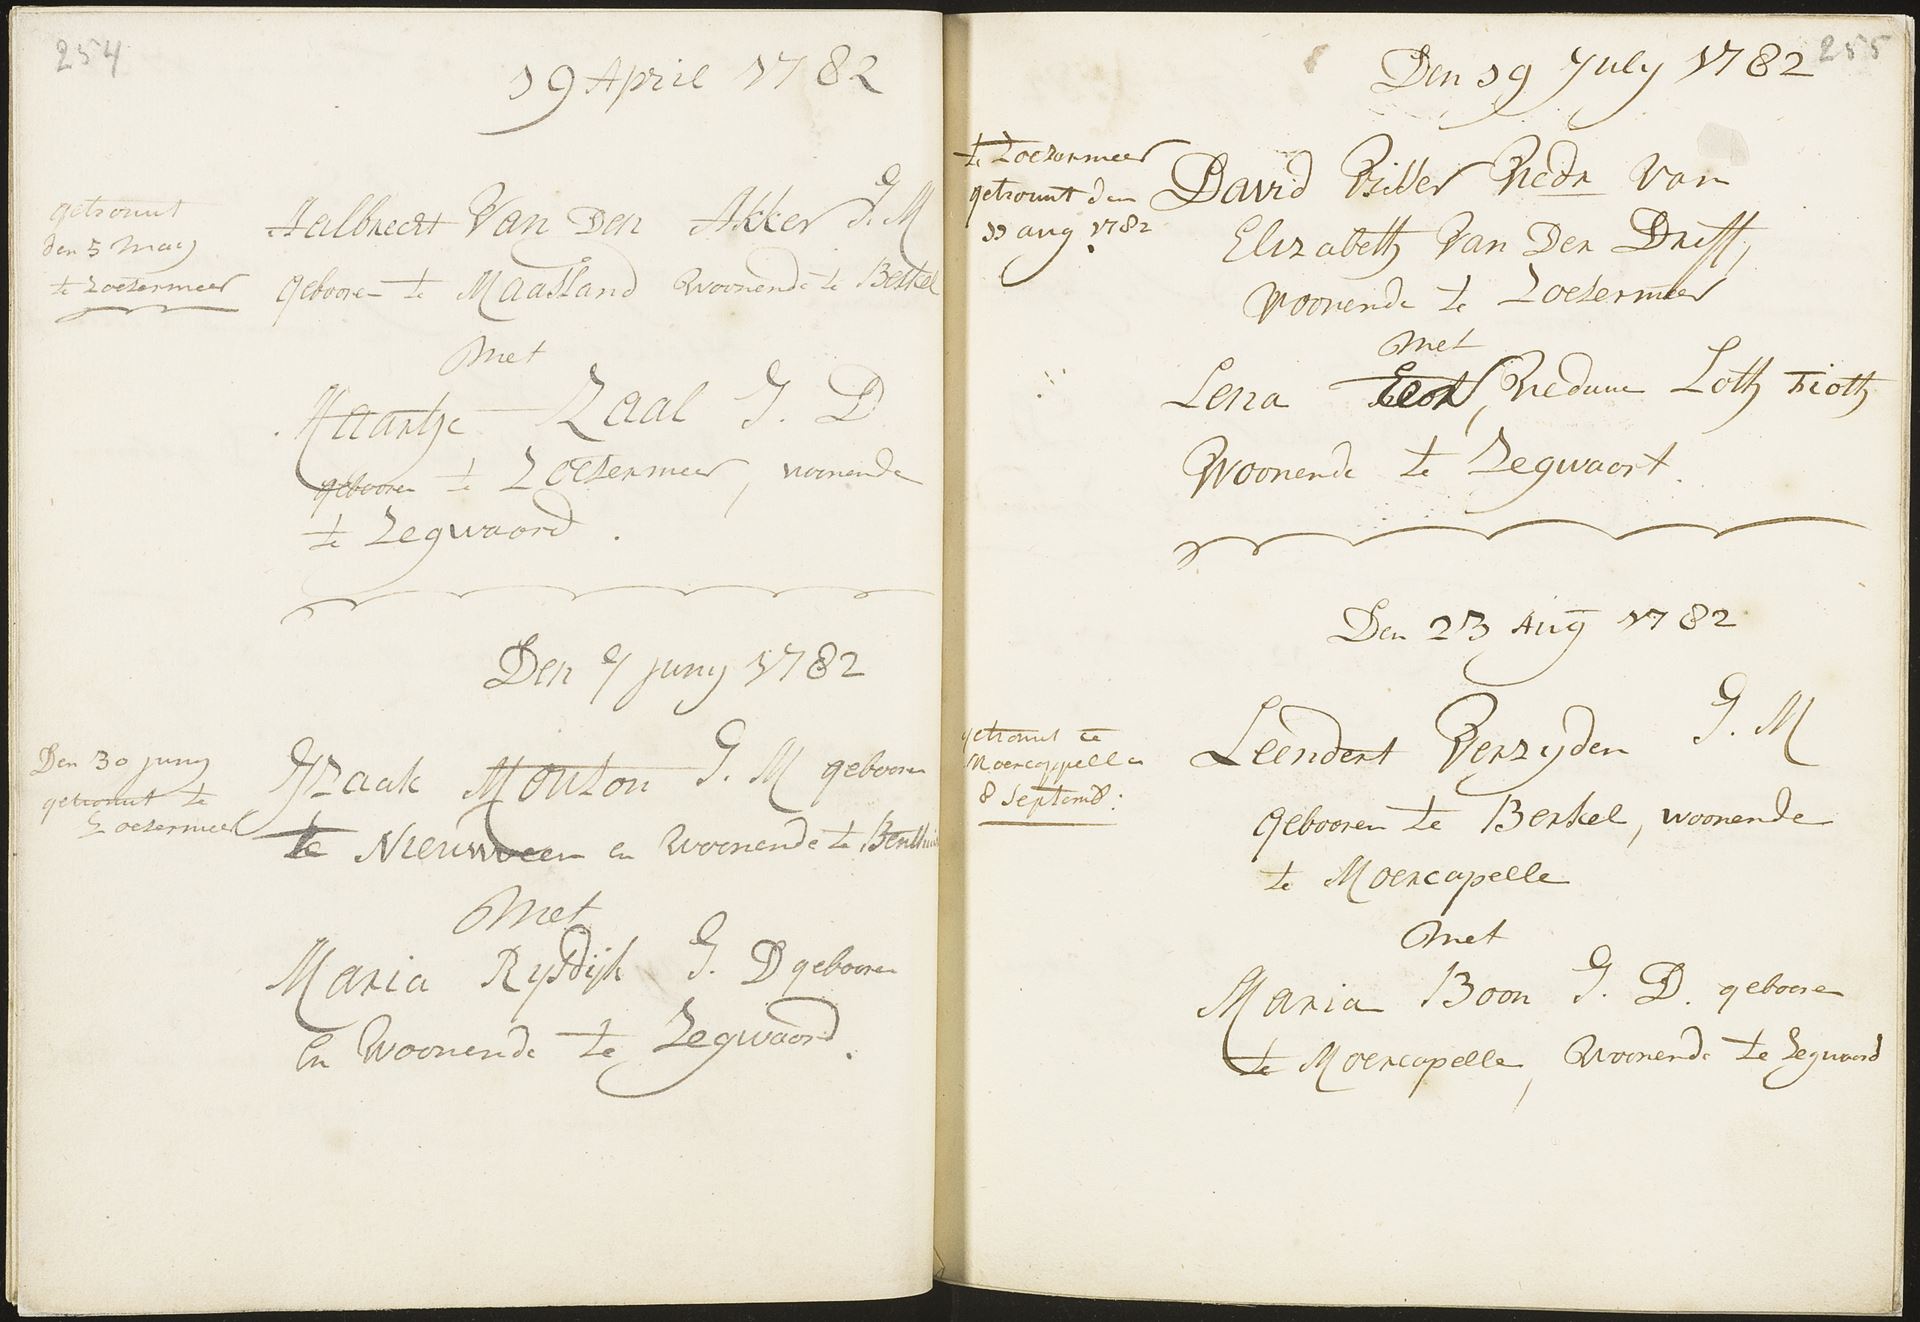 254
19 April 1782
getrouwt
den 5 Maey
te Zoetermeer
Aalbrecht Van Den Akker J. M
gebooren te Maasland woonende te Berkel
Met
Maartje Zaal J. D
gebooren te Zoetermeer, woonende
te Zegwaard.
Den 7 juny 1782
Den 30 juny
getrouwt te
Zoetermeer
Yzaak Mouton J. M gebooren
te Nieuwveen en woonende te Benthui
Met
Maria Rysdijk J. D gebooren
en woonende te Zegwaard.
255
Den 19 July 1782
te Zoetermeer
getrouwt den
11 aug 1782
David Wedr Van
Elizabeth Van Der Drift,
woonende te Zoetermeer
Met
Lena, Weduwe Loth
Woonende te Zegwaart.
Den 23 Aug 1782
getrouwt te
Moercappelle
8 Septemb:
Leendert Verzyden J. M
gebooren te Berkel, woonende
te Moercapelle
Met
Maria Boon J. D. geboore
te Moercapelle, Woonende te Zegwaard